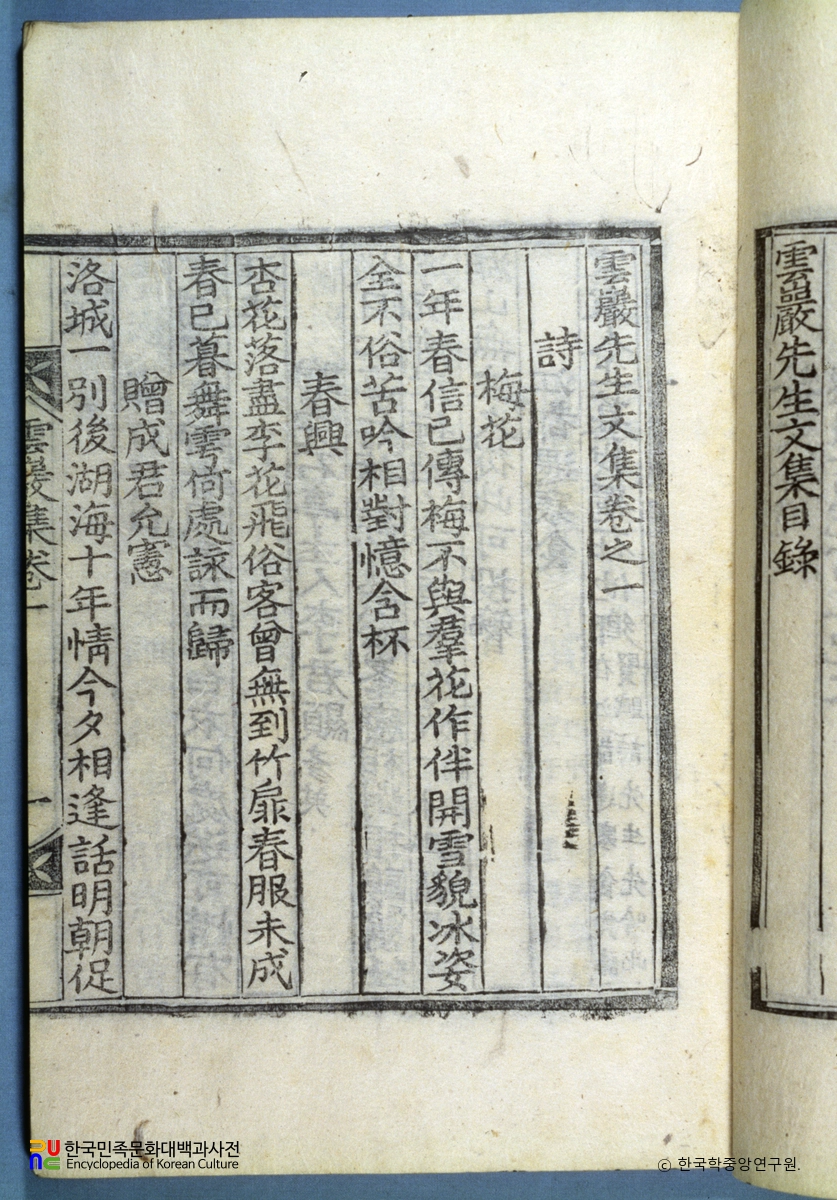 雲巖先生文集目錄
雲巖先生文集卷之一
詩
梅花
一年春信已傳梅不與羣花作伴開雪貌冰姿
全不俗苦吟相對憶含杯
春興
杏花落盡李花飛俗客曾無到竹扉春服未成
春已暮舞雩何處詠而歸
贈成君允憲
洛城一別後湖海十年情今夕相逢話明朝促
雲巖集卷一
한국민족문화대백과사전
Encyclopedia of Korean Culture
© 한국학중앙연구원.